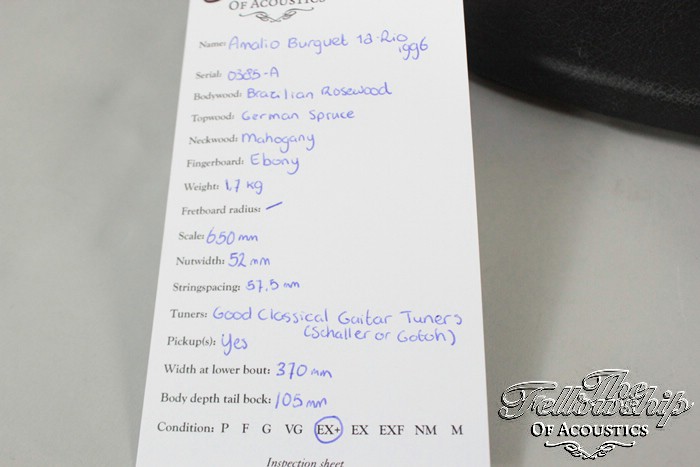 OF ACOUSTICS
Name: Amalio Burguet 1a-Rio
1996
Serial: 0385-A
Bodywood: Brazilian Rosewood
Topwood: German Spruce
Neckwood: Mahogany
Fingerboard: Ebony
Weight: 1,7 kg
Fretboard radius: –
Scale: 650 mm
Nutwidth: 52 mm
Stringspacing: 57,5 mm
Tuners: Good Classical Guitar Tuners
(Schaller or Gotoh)
Pickup(s): Yes
Width at lower bout: 370 mm
Body depth tail bock: 105 mm
Condition: P F G VG EX+ EX EXF NM M
Inspection sheet
The
Fellowship
OF ACOUSTICS